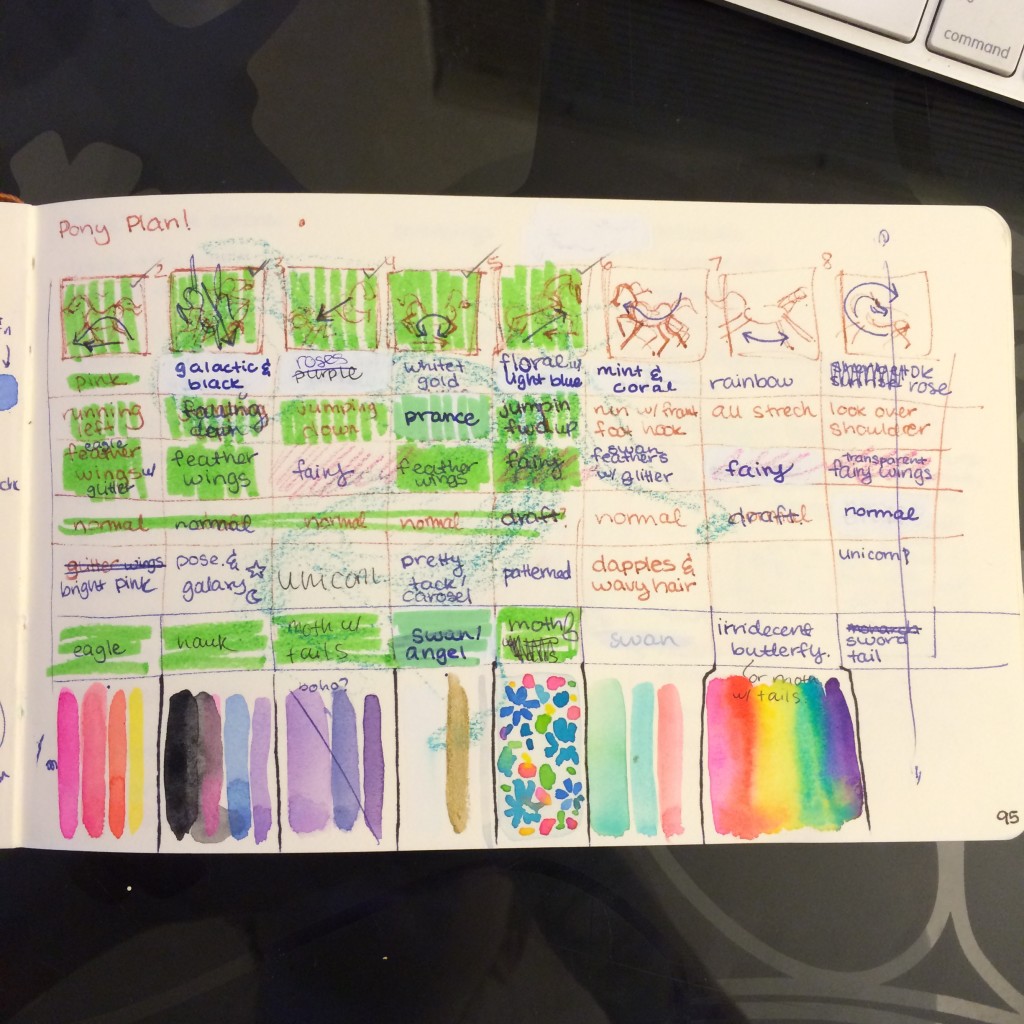 command
Pony Plan!
2 3 4 5 6 7 8
pink
galactic &
black
roses
purple
white &
gold
floral w/
light blue
mint &
coral
rainbow
DK
rose
running
left
falling
down
jumping
down
prance
jumpin
fwd up
run w/ front
foot hook
all strech
look over
shoulder
eagle
feather
wings w/
glitter
feather
wings
fairy
feather
wings
fairy
swan
feathers
w/ glitter
fairy
transparent
fairy wings
normal
normal
normal
normal
draft?
normal
draft
normal
glitter wings
bright pink
pose &
galaxy
unicorn
pretty
tack/
carosel
patterned
dapples &
wavy hair
unicorn?
eagle
hawk
moth w/
tails
swan/
angel
moth &
tails
swan
irridecent
butterfly.
or moth
w/ tails
monarch
sword
tail
boho?
95